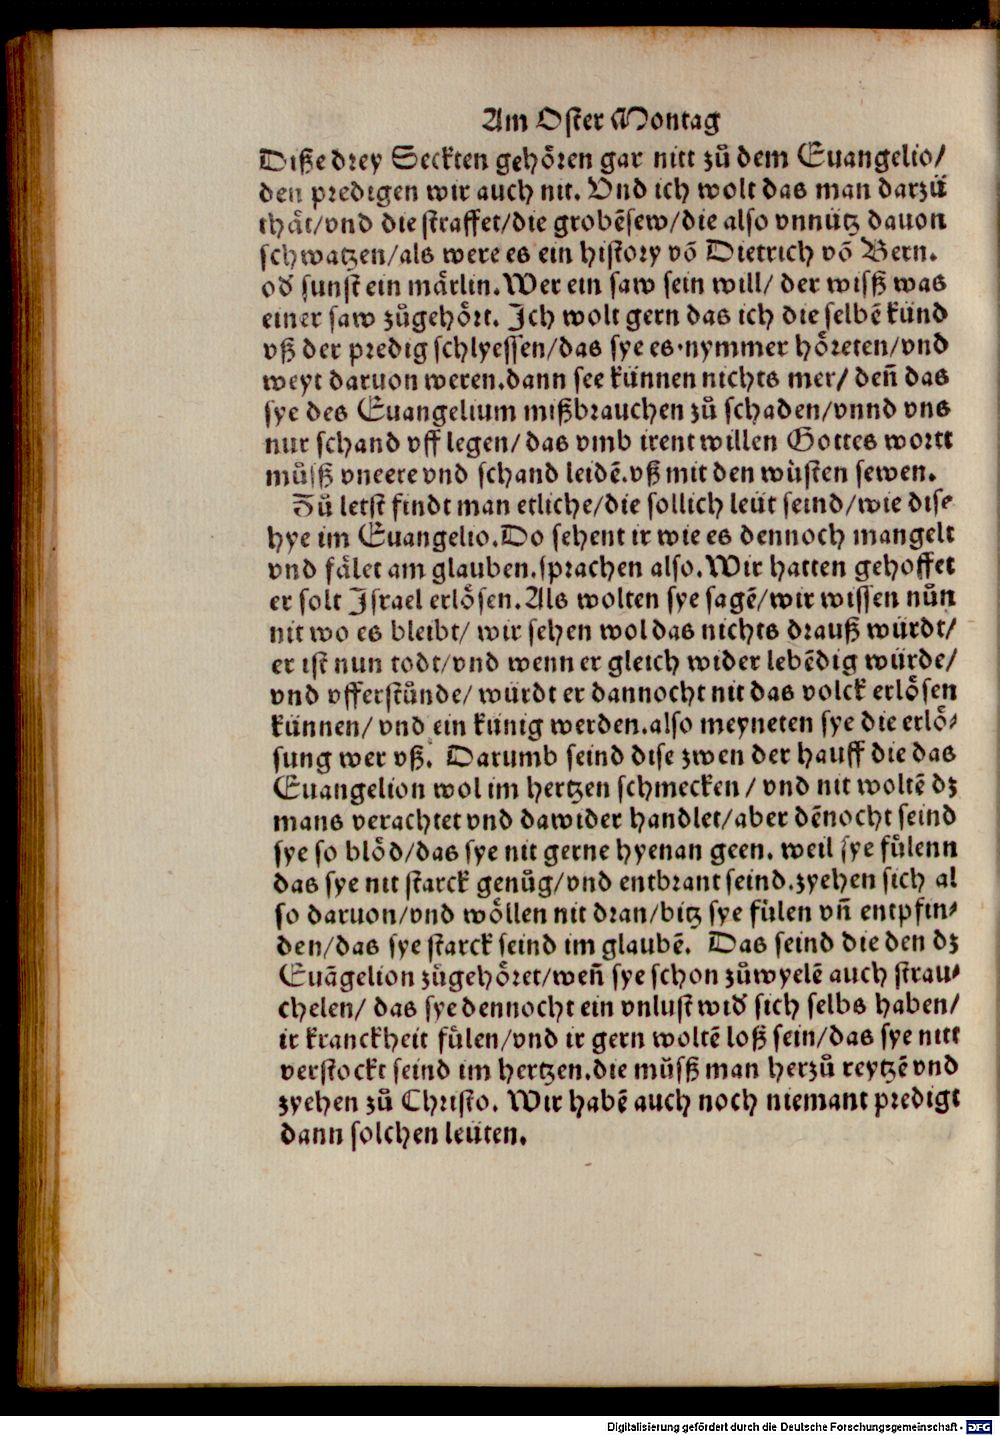 Am Oster Montag
Diße drey Seckten gehöꝛen gar nitt zů dem Euangelio/
den predigen wir auch nit. Vnd ich wolt das man darzů
thåt/vnd die straffet/die grobẽsew/die also vnnütz dauon
schwatzen/als were es ein history võ Dietrich võ Bern.
od̕ sunst ein mårlin. Wer ein saw sein will/ der wisß was
einer saw zůgehöꝛt. Jch wolt gern das ich die selbẽ künd
vß der predig schlyessen/das sye es nymmer höreten/vnd
weyt daruon weren.dann see künnen nichts mer/ deñ das
sye des Euangelium mißbrauchen zů schaden/vnnd vns
nur schand vff legen/das vmb irent willen Gottes wortt
můsß vneere vnd schand leidẽ.vß mit den wůsten sewen.
Zů letst findt man etliche/die sollich leüt seind/wie dise
hye im Euangelio.Do sehent ir wie es dennoch mangelt
vnd fålet am glauben.sprachen also.Wir hatten gehoffet
er solt Jsrael erlösen.Als wolten sye sagẽ/wir wissen nůn
nit wo es bleibt/ wir sehen wol das nichts drauß würdt/
er ist nun todt/vnd wenn er gleich wider lebẽdig würde/
vnd vfferstůnde/ würdt er dannocht nit das volck erlösen
künnen/ vnd ein künig werden.also meyneten sye die erlö⸗
sung wer vß. Darumb seind dise zwen der hauff die das
Euangelion wol im hertzen schmecken / vnd nit woltẽ dz
mans verachtet vnd dawider handlet/aber dẽnocht seind
sye so blöd/das sye nit gerne hyenan geen. weil sye fůlenn
das sye nit starck genůg/vnd entbrant seind.zyehen sich al
so daruon/vnd wöllen nit dran/bitz sye fůlen vñ entpfin⸗
den/das sye starck seind im glaubẽ. Das seind die den dz
Euãgelion zůgehöꝛet/weñ sye schon zůwyelẽ auch strau⸗
chelen/ das sye dennocht ein vnlust wid̕ sich selbs haben/
ir kranckheit fůlen/vnd ir gern woltẽ loß sein/das sye nitt
verstockt seind im hertzen.die můsß man herzů reytzẽ vnd
zyehen zů Christo. Wir habẽ auch noch niemant predigt
dann solchen leüten.
Digitalisierung gefördert durch die Deutsche Forschungsgemeinschaft - DFG